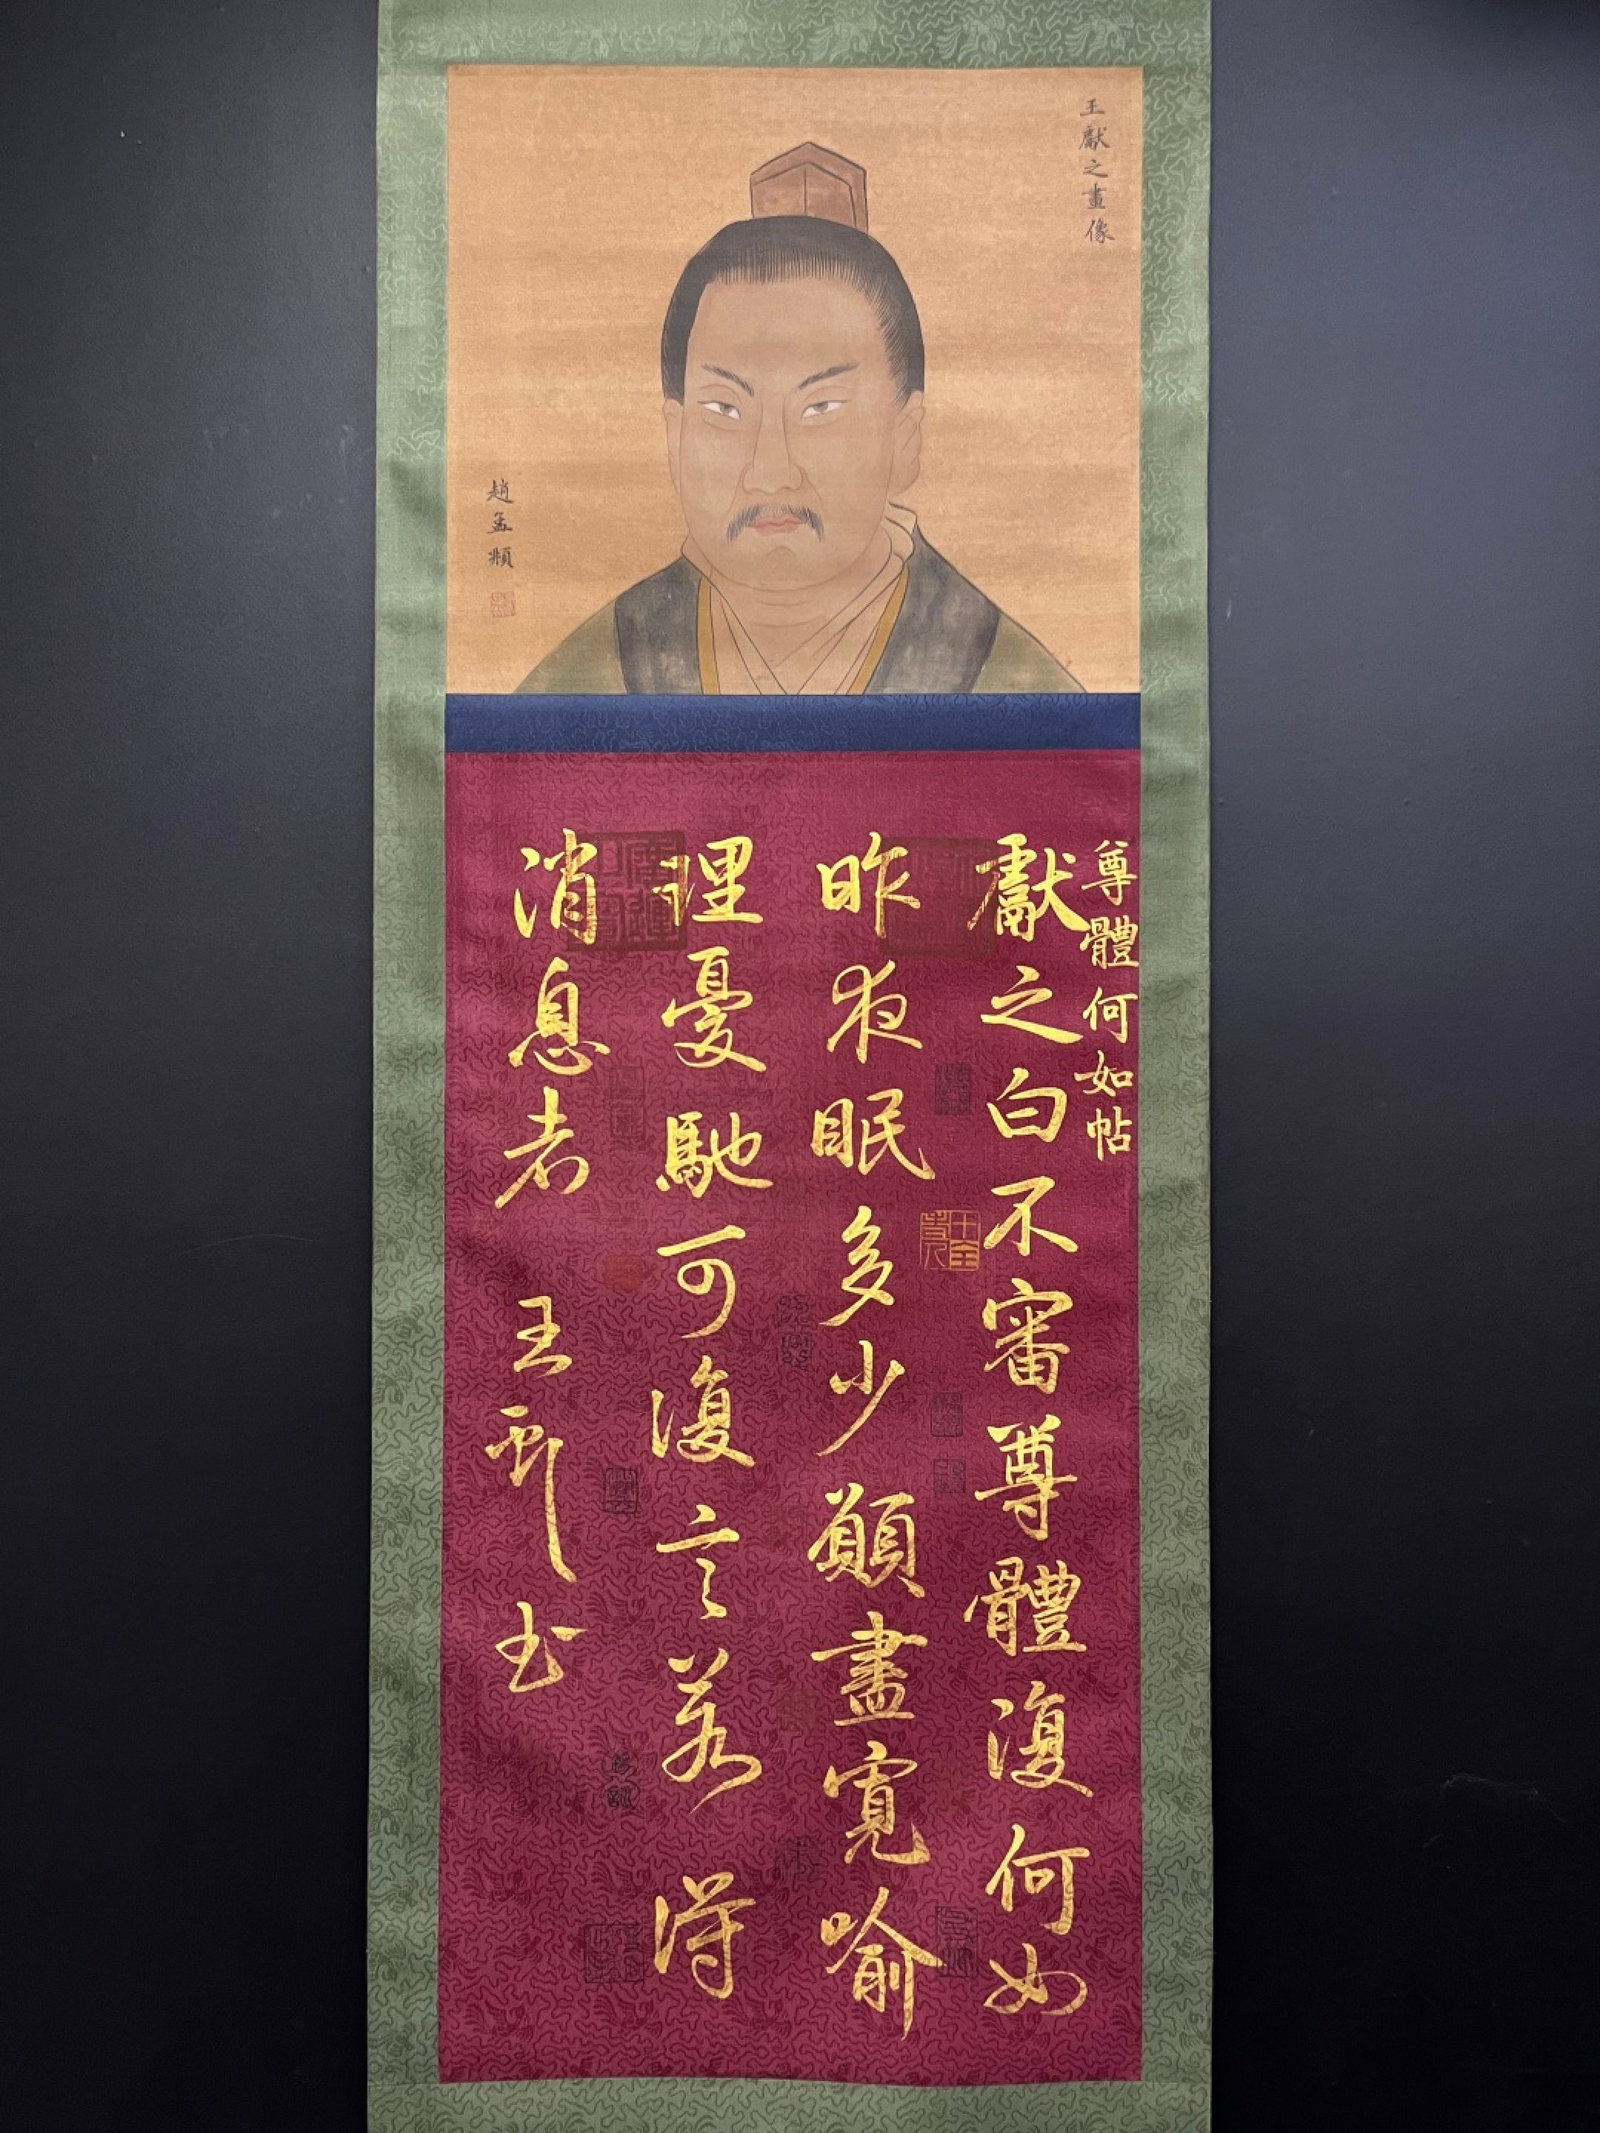 王獻之畫像
趙孟頫
尊體何如帖
獻之白不審尊體復何如
昨夜眠多少願盡寬喻
理憂馳可復言若得
消息者
王獻之
十全老人